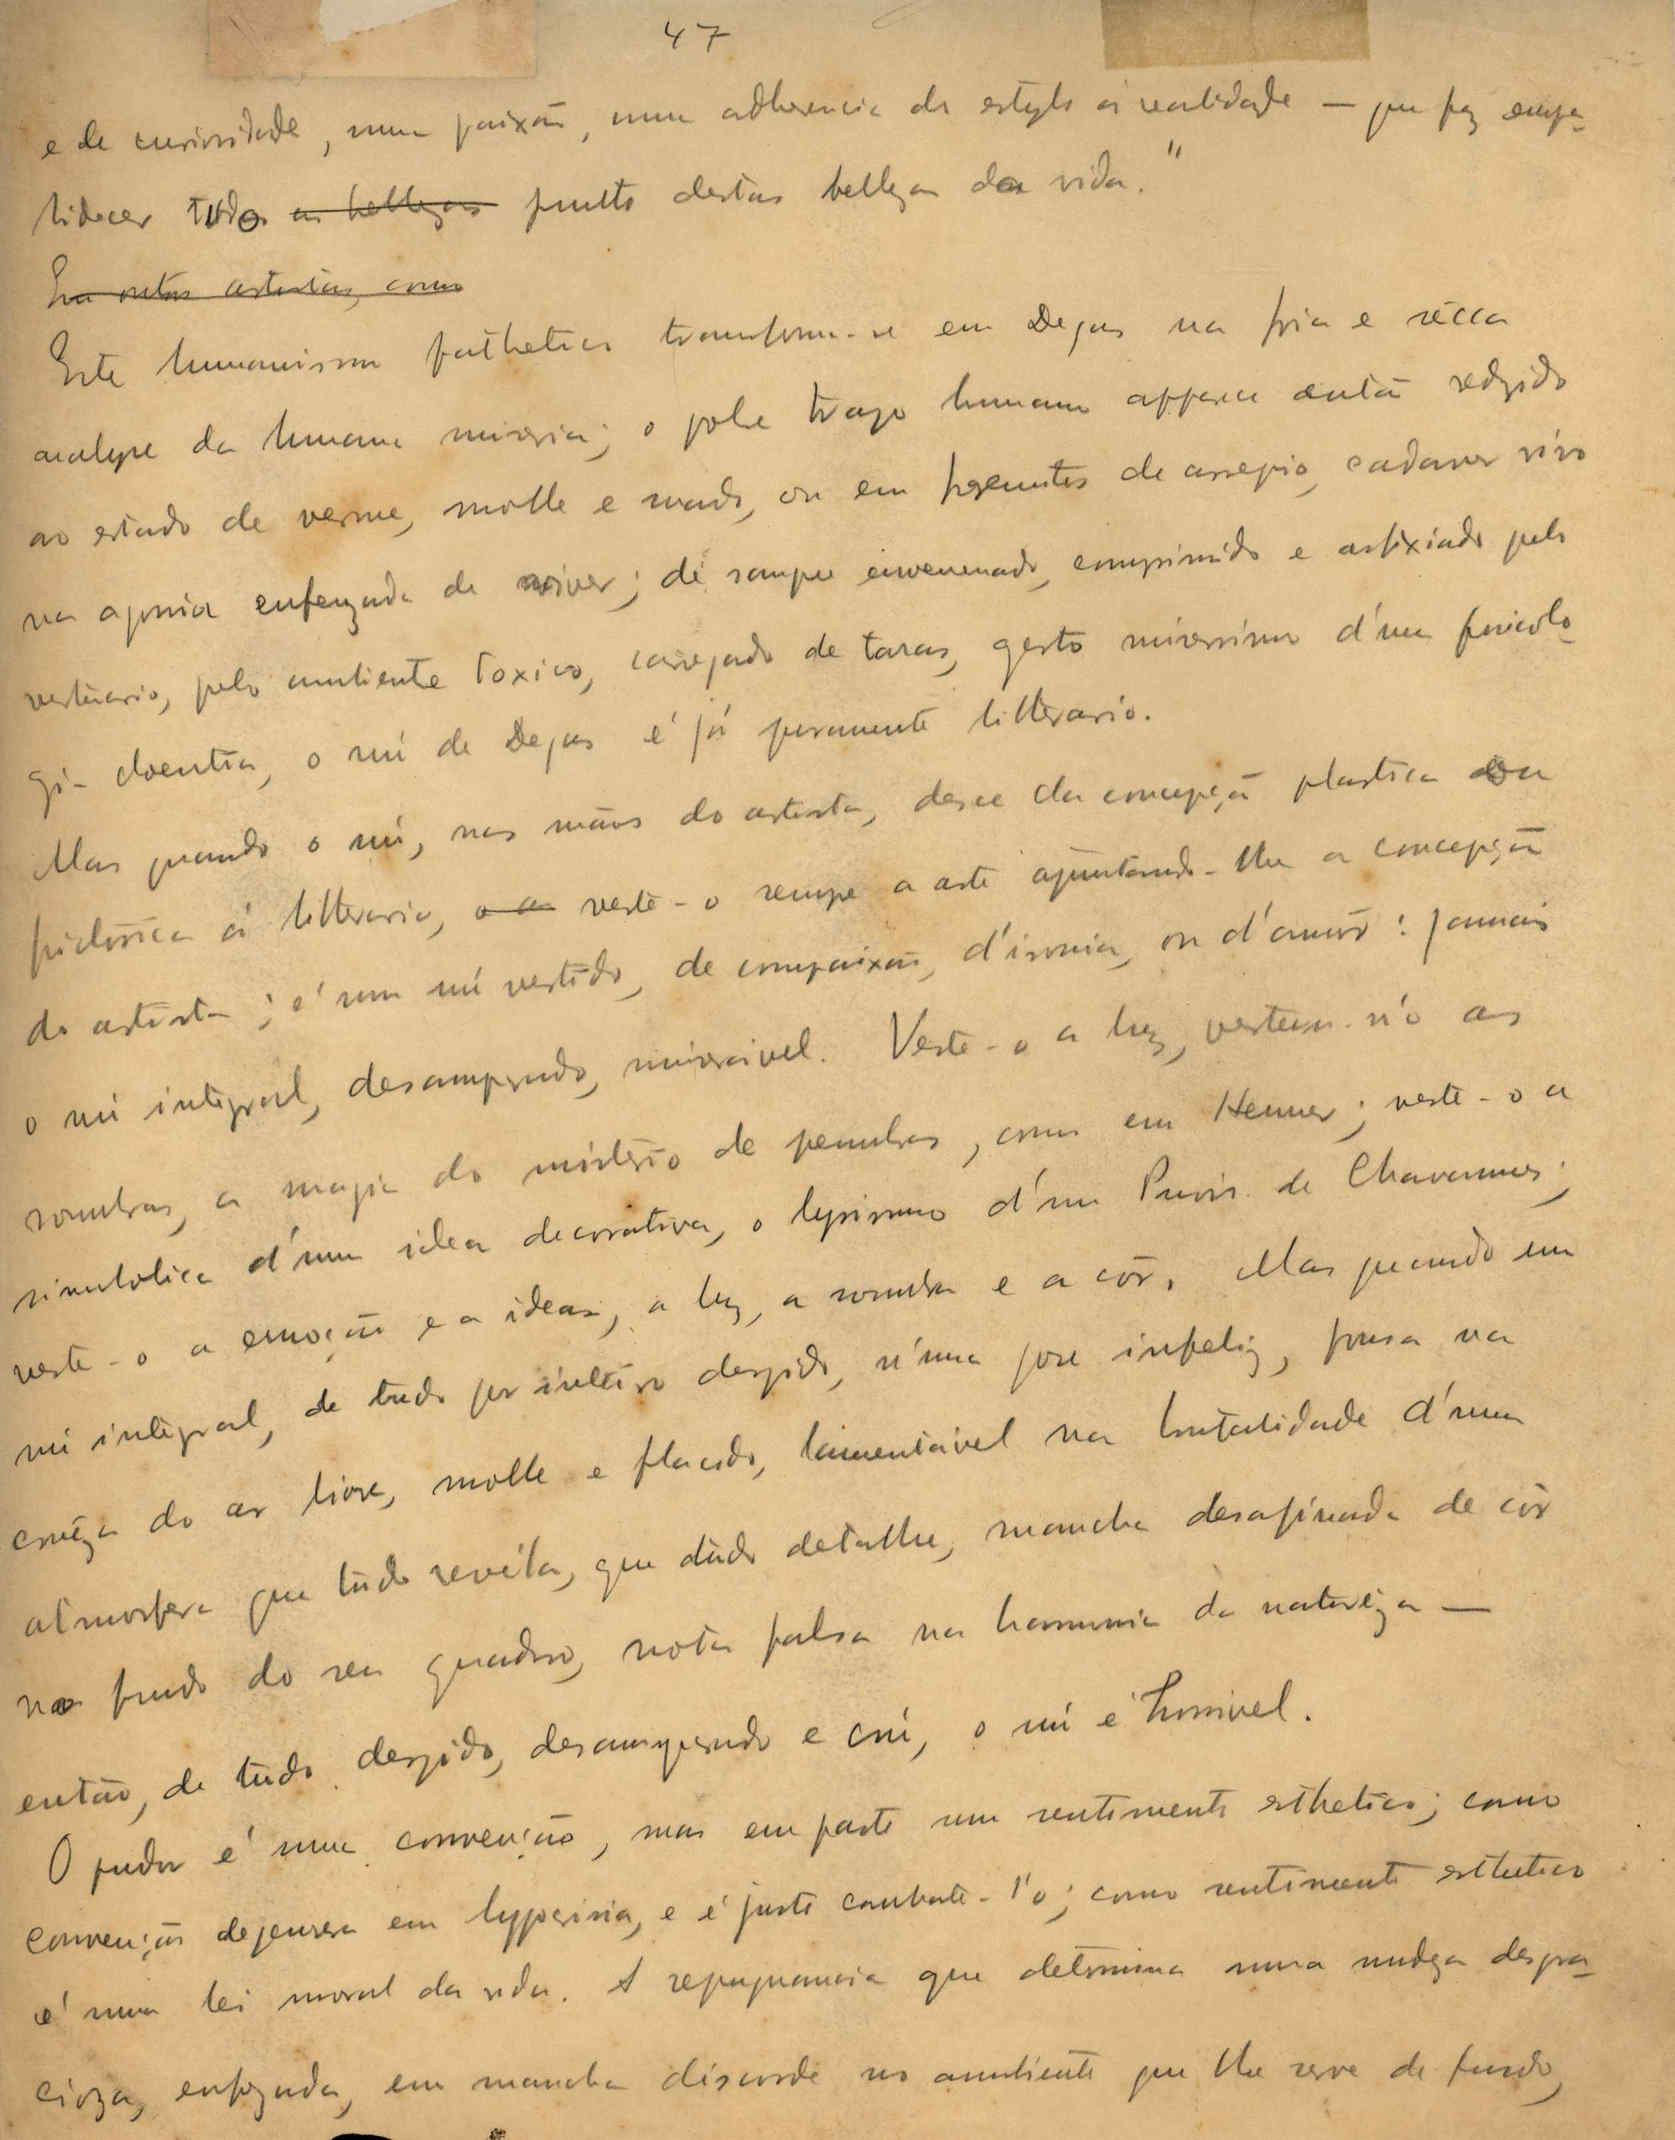 47
e de curiosidade, uma paixão, uma adherencia do estylo á realidade — que faz empa-
lidecer tudo as bellezas junto destas bellezas da vida."
Em outros artistas, como
Este humanismo pathetico transforma-se em Degas na fria e sêcca
analyse da humana miseria; o pobre trapo humano apparece então redzido
ao estado de verme, molle e mado, ou em de arrepio, cadaver vivo
na agonia enfezada de viver; de sangue envenenado, comprimido e asfixiado pelo
vestuario, pelo ambiente toxico, carregado de taras, gesto miserrimo d'uma psicolo-
gia doentia, o nú de Degas é já puramente litterario.
Mas quando o nú, nas mãos do artista, desce da concepção plastica ou
pictorica á litteraria, o a veste-o sempre a arte ajuntando-lhe a concepção
do artista; é um nú vestido, de compaixão, d'ironia, ou d'amôr: jamais
o nú integral, desamparado, miseravel. Veste-o a luz, vestem-n'o as
sombras, a magia do misterio de penumbras, como em Henner; veste-o a
simbolica d'uma idea decorativa, o lyrismo d'um Puvis de Chavannes;
veste-o a emoção e a ideas, a luz, a sombra e a côr. Mas quando um
nú integral, de tudo por inteiro despido, n'uma pose infeliz, pousa na
crueza do ar livre, molle e flacido, lamentavel na brutalidade d'uma
atmosfera que tudo revéla, que tudo detalha, mancha desafinada de côr
no fundo do seu quadro, nota falsa na harmonia da naturêza —
então, de tudo despido, desamparado e crú, o nú é horrivel.
O pudor é uma convenção, mas em parte um sentimento esthetico; como
convenção degenera em hypocrisia, e é justo combate-l'o; como sentimento esthetico
é uma lei moral da vida. A repugnancia que determina uma nudeza desgra-
cioza, enfezada, em mancha discorde no ambiente que lhe serve de fundo,